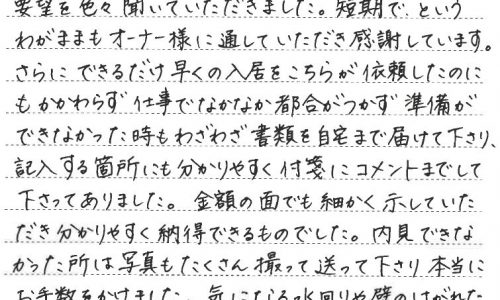 要望を色々聞いていただきました。短期で、という
わがままもオーナー様に通していただき感謝しています。
さらにできるだけ早くの入居をこちらが依頼したのに
もかかわらず仕事でなかなか都合がつかず準備が
できなかった時もわざわざ書類を自宅まで届けて下さり、
記入する箇所にも分かりやすく付箋にコメントまでして
下さってありました。金額の面でも細かく示していた
だき分かりやすく納得できるものでした。内見できな
かった所は写真もたくさん撮って送って下さり本当に
お手数をかけました。気になる水回りや壁のはがれた